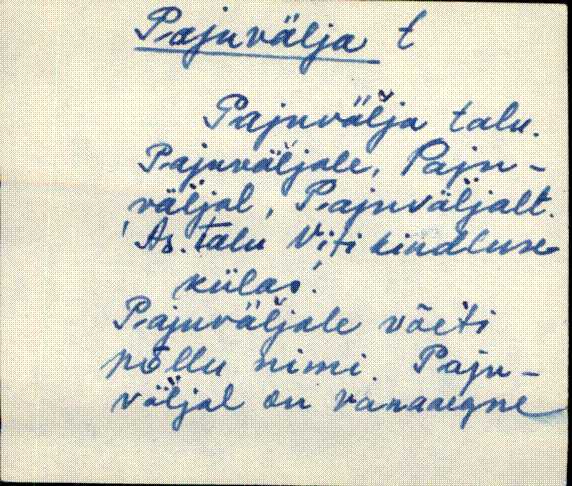 Pajuvälja t
Pajuvälja talu.
Pajuväljale, Paju-
väljal, Pajuväljalt.
'As. talu Viti kindluse
külas'.
Pajuväljale võeti
põllu nimi. Paju-
väljal on vanaaegne